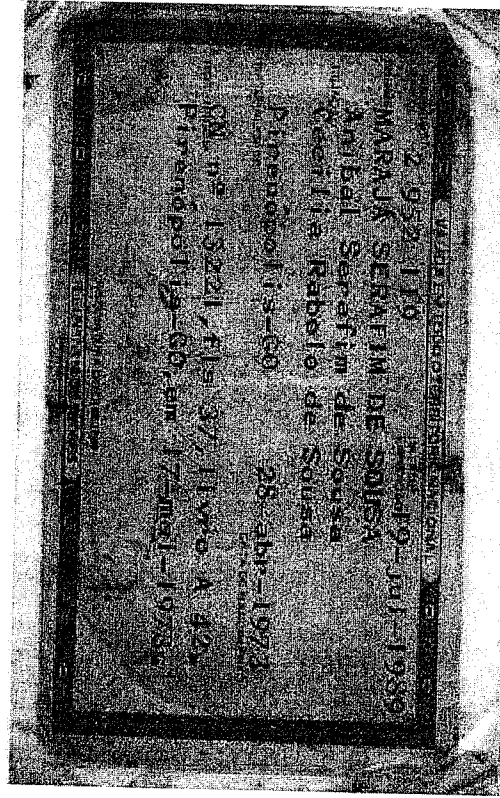 VÁLIDA EM TODO O TERRITÓRIO NACIONAL
2 952 110 19-jul-1989
MARAJÁ SERAFIM DE SOUSA
Anibal Serafim de Sousa
Cecilia Rabelo de Sousa
Pirenópolis-GO 28-abr-1973
CN. nº 13221, fls 37, livro A 42,
Pirenópolis-GO, em 17-mai-1973.